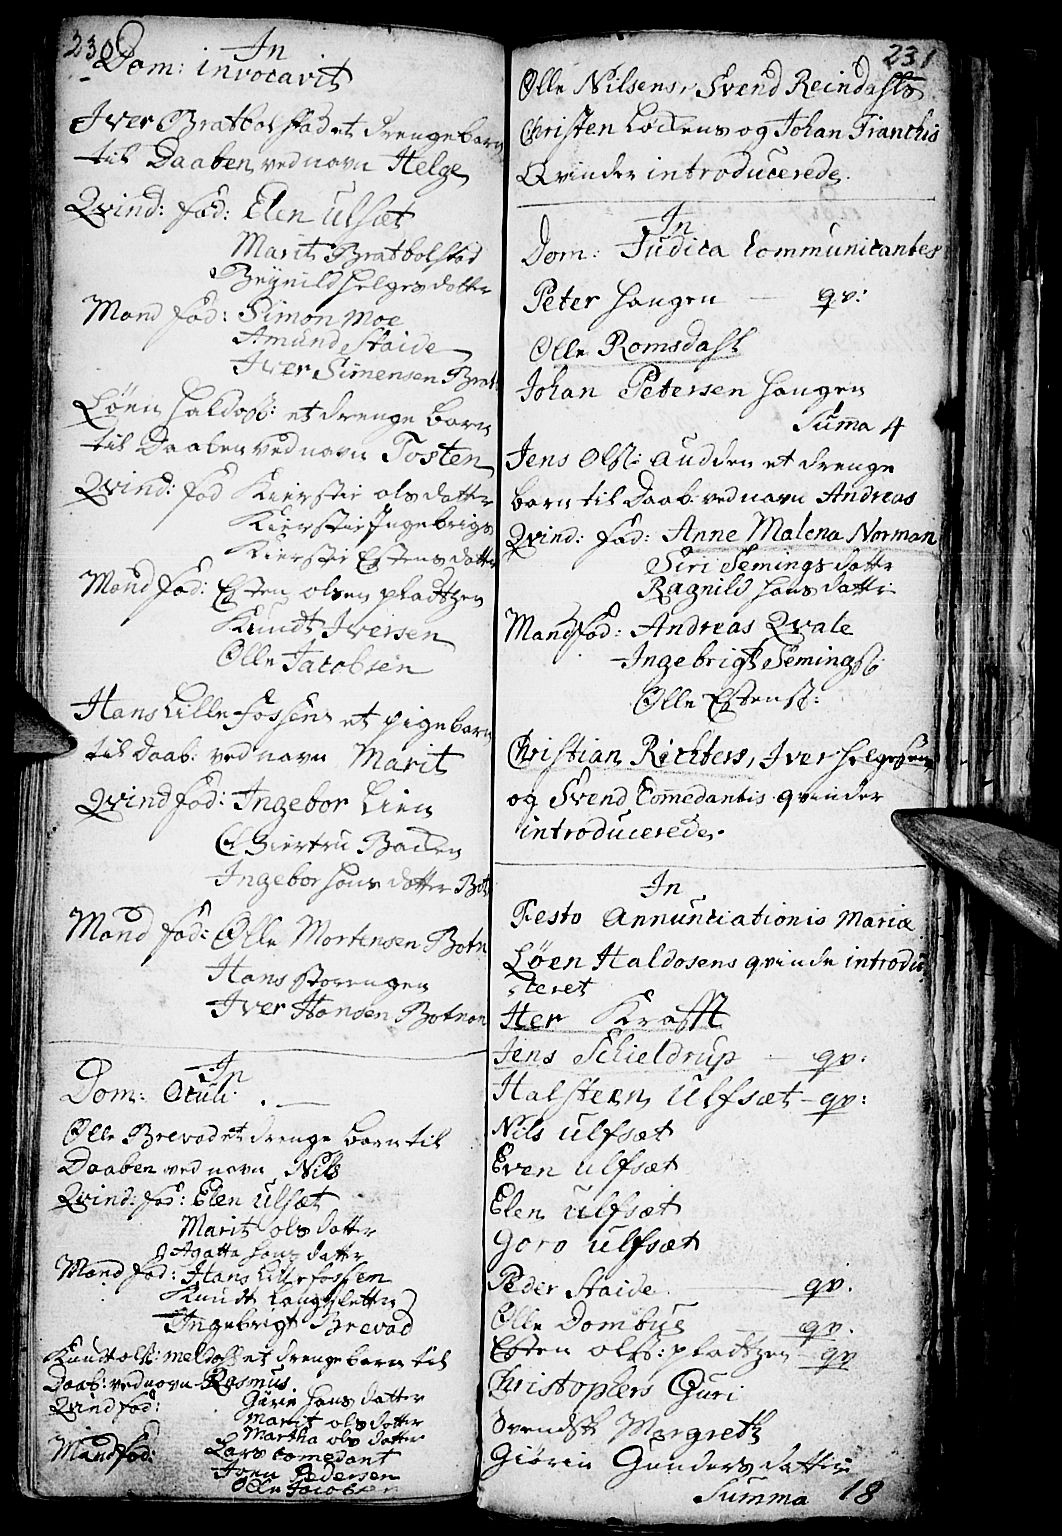 230
In
Dom: invocavit
Iver Bratbolstad et drengebarn
til Daaben ved navn Helge
Qvind: fad: Elen Ulsæt
Marit Bratbolstad
Brynild Helgesdatter
Mand fad: Simon Moe
Amund Staide
Iver Simensen Brat
Löen Haldoss: et drenge barn
til Daaben ved navn Tosten
Qvind: fad Kierstie olsdatter
Kierstie Ingebrigs
Kierstie Estensdatter
Mand fad: Esten olsen pladtzen
Knudt Iversen
Olle Jacobsen
Hans Lillefossen et pigebarn
til Daab: ved navn Marit
Qvind fad: Ingebor Lien
Giertru Baden
Ingebor Hans datter Bot
Mand fad: Olle Mortensen Botn
Hans Storengen
Iver Hansen Botnen
In
Dom: Oculi
Olle Brevad et drenge barn til
Daaben ved navn Nils
Qvind: fad: Elen Ulsæt
Marit ols datter
Agatta Hans datter
Mand fad: Hans Lillefossen
Knudt Langsletter
Ingebrigt Brevad
Knudt ols: meldosst et drengebarn til
Daab: ved navn Rasmus
Qvind fad: Gurie Hans datter
Marit ols datter
Martha ols datter
Mand fad: Lars Comedant
Joen Pedersen
Olle Jacobsen
231
Olle Nilsens, Svend Reindahls
Christen Löckens og Johan Tranthis
Qvinder introducerede.
In
Dom: Judica Communicantes
Peter Haugen — qv:
Olle Romsdahl
Johan Petersen Haugen
Suma 4
Jens Ols: audden et drenge
barn til Daab: ved navn Andreas
Qvind: fad: Anne Malena Norman
Siri Semings datter
Ragnild Hans datter
Mand fad: Andreas Qvale
Ingebrigt Semings:
Olle Estens:
Christian Richters, Iver Helgesens
og Svend Comedantis qvinder
introducerede.
In
Festo Annunciationis Mariæ
Löen Haldosens qvinde introdu-
ceret
Her Krafft
Jens Schieldrup — qv:
Halsteen Ulfsæt — qv:
Nils Ulfsæt
Even Ulfsæt
Elen Ulfsæt
Goro Ulfsæt
Peder Staide — qv.
Olle Dombüe — qv.
Esten ols: pladtzen — qv
Christophers Guri
Svendsk Margreth
Giörin Gunders datter
Summa 18